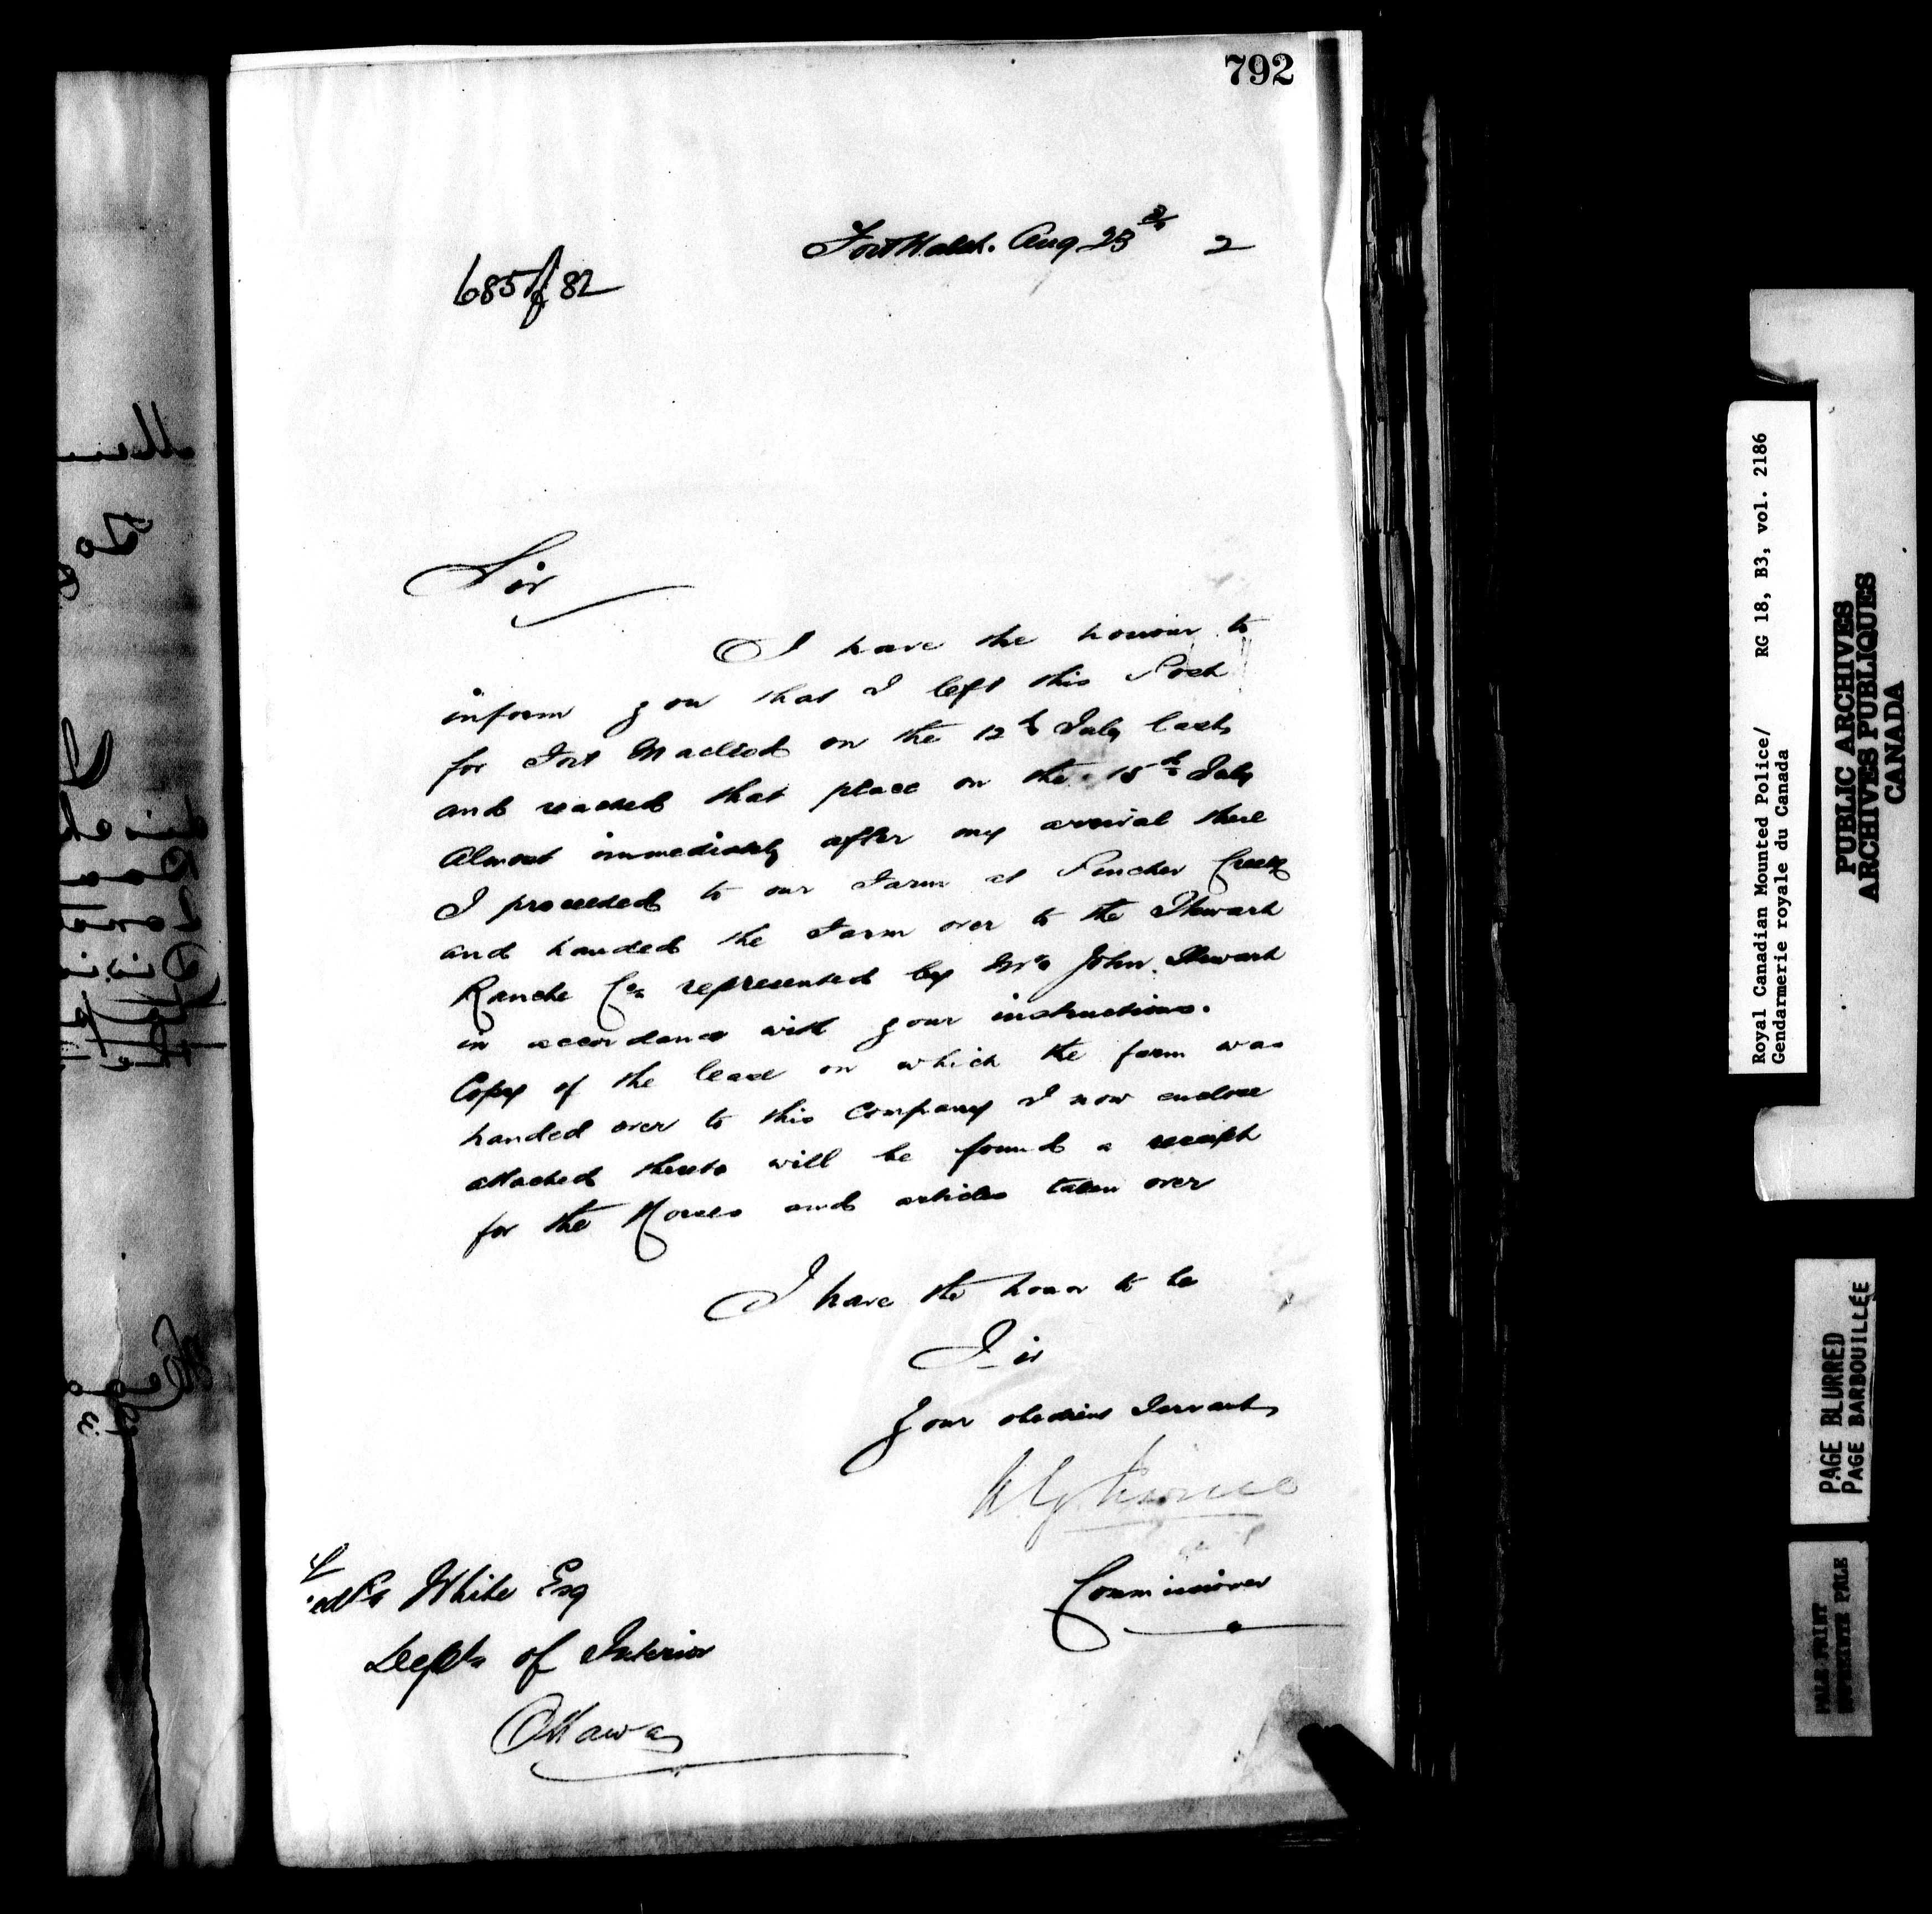 792
Fort Walsh. Aug 23rd 2
685 of 82
Sir
I have the honour to
inform you that I left this Post
for Fort Macleod on the 12th July last
and reached that place on the 15th July
Almost immediately after my arrival there
I proceeded to our Farm at Pincher Creek
and handed the Farm over to the Stewart
Ranche Co. represented by Mr. John Stewart
in accordance with your instructions.
Copy of the lease on which the farm was
handed over to this Company I now enclose
attached thereto will be found a receipt
for the Horses and articles taken over
I have the honor to be
Sir
Your obedient Servant
A G Irvine
Commissioner
White Esq
Dept. of Interior
Ottawa
Royal Canadian Mounted Police/ RG 18, B3, vol. 2186
Gendarmerie royale du Canada
PUBLIC ARCHIVES
ARCHIVES PUBLIQUES
CANADA
PAGE BLURRED
PAGE BARBOUILLÉE
PALE PRINT
PALE